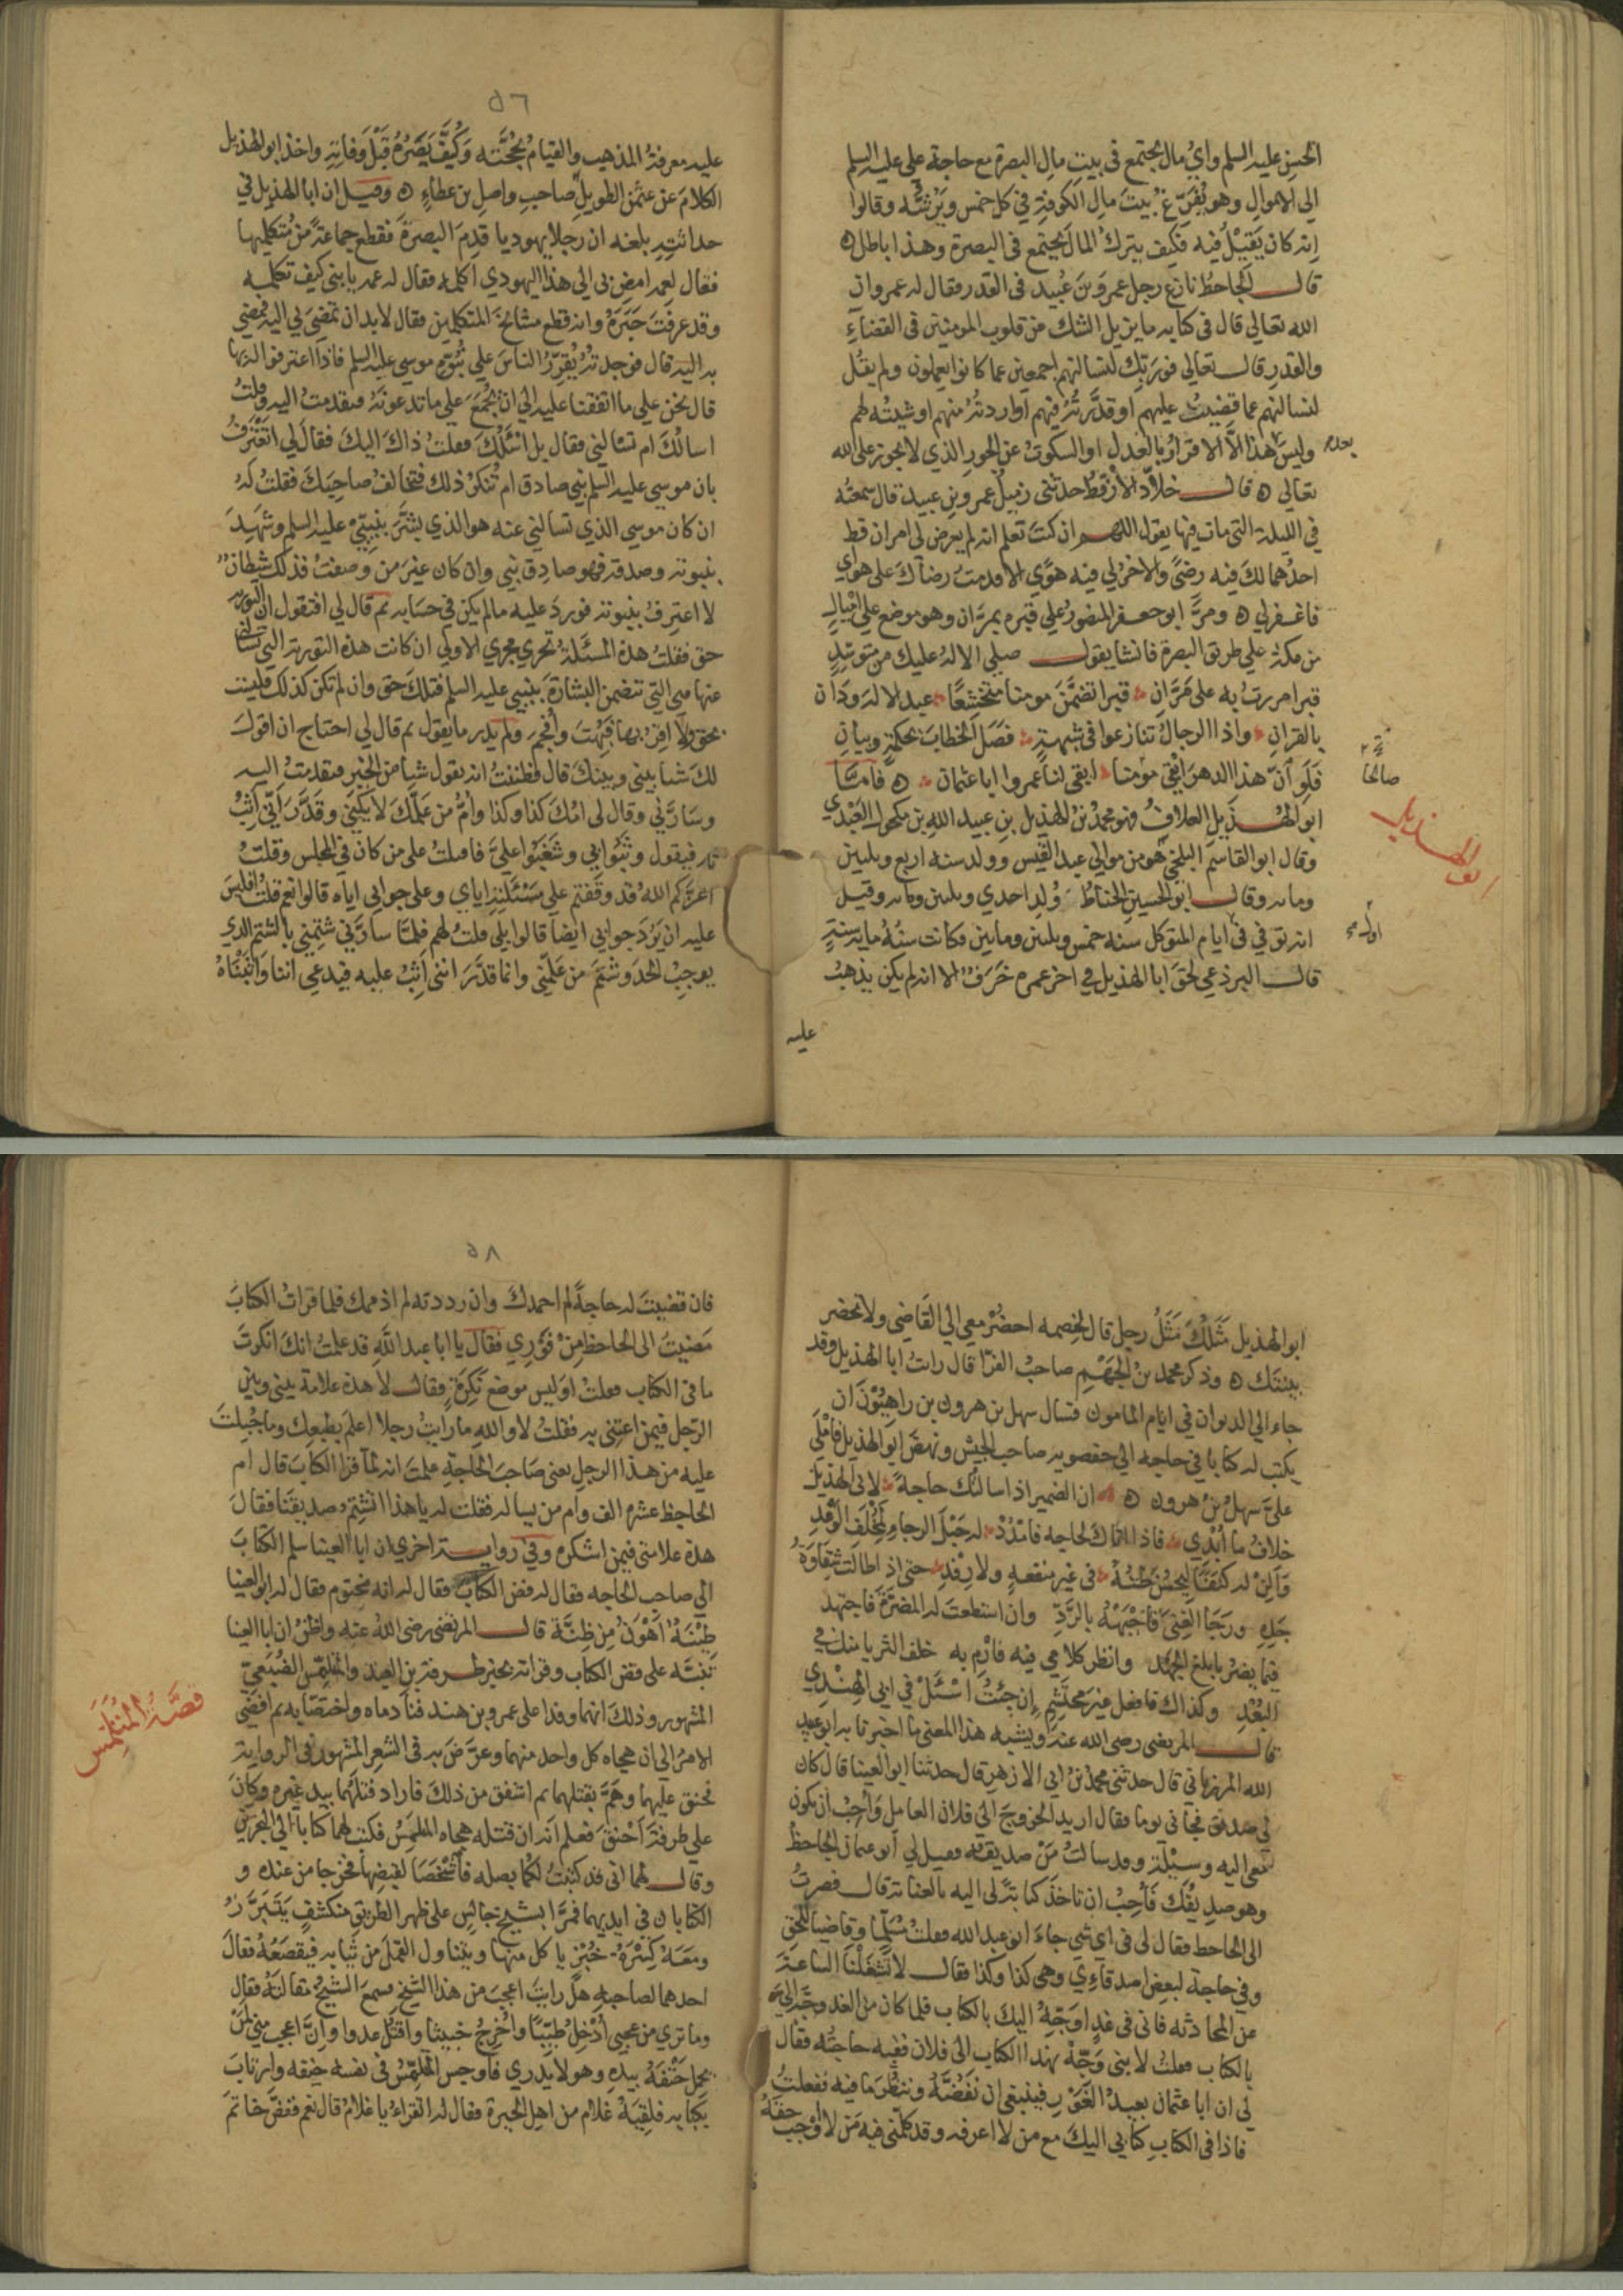 الحسن عليه السلم وايُّ مال يجتمع فى بيتِ مالِ البصرة مع حاجة علي عليه السلم
الى الاموالِ وهو يُفَرِّغ بيتَ مالِ الكوفةِ في كل خمس ويَرُشُّه وقالوا
انه كان يَقِيلُ فيه فكيف يترك المالَ يجتمع فى البصرة وهذا باطل
قال الجاحظُ نازع رجل عمرَو بنَ عُبيد فى القدر فقال له عمرو ان
الله تعالى قال فى كتابه ما يزيل الشك عن قلوب المومنين فى القضاءِ
والقدرِ قال تعالى فوربك لنسالنهم اجمعين عما كانوا يعملون ولم يقُل
لنسالنهم عما قضيتُ عليهم او قدَّرتُه فيهم او اردتُه منهم او شيئتُه لهم
وليس بعد هذا الا الاقرارُ بالعدل او السكوتُ عن الجورِ الذي لا يجوز على الله
تعالى قال خلاّد الأَرْقطُ حدثنى زميلُ عمرو بن عبيد قال سمعتُه
في الليلة التى مات فيها يقول اللهم ان كنتَ تعلم انه لم يعرض لى امران قط
احدُهما لكَ فيه رضىً والاخرُ لي فيه هوًى الا قدمتُ رضاكَ على هواي
فاغفر لي ومرَّ ابو جعفر المنصورُ علي قبره بمرَّان وهو موضع علي اميالٍ
من مكة علي طريق البصرة فانشا يقول صلى الاله عليك من متوسّدٍ
قبرا مررتُ به على مَرَّانِ قبرا تضمَّنَ مومنا متخشِّعًا عبد الاله ودان
بالقرانِ واذا الرجالُ تنازعوا فى شبهةٍ فصَل الخطابَ بحكمةٍ وبيانِ
فلَو أنّ هذا الدهرَ ابقى مؤمنا ابقى لنا عمروا ابا عثمان فامّا
صالحًا
ابو الهُذيل العلافُ فهو محمدُ بنُ الهذيل بنِ عبيد اللهِ بن مكحول العَبْدي
ابو الهذيل
وقال ابو القاسم البلخي هو من موالي عبد القيس وولد سنه اربع وثلثين
ومايه وقال ابو الحسينِ الخياطُ وُلد احدي وثلثين ومايه وقيل
انه توفي فى ايام المتوكل سنه خمس وثلثين ومايتين وكانت سنُّه مايه سنةٍ
قال البرذعي لحقَ ابا الهذيل في اخر عمره خَرَفٌ الا انه لم يكن يذهبُ
عليه
٥٦
عليه معرفةُ المذهبِ والقيامُ بحُجَّتِه وكُيِّفَ بَصَرُهُ قَبْلَ وفاتِه واخذ ابو الهذيل
الكلامَ عن عثمن الطويلِ صاحبِ واصلِ بن عطاءٍ وقيل ان ابا الهذيل في
حداثتِه بلغه ان رجلا يهوديا قدِمَ البصرةَ فقطع جماعةً من متكلميها
فقال لعمه امضِ بى الى هذا اليهودي اكلمه فقال له عمه يا بنى كيف تكلمه
وقد عرفتَ خَبَرَهُ وانه قطع مشايخَ المتكلمين فقال لا بد ان تمضيَ بي اليه فمضى
به اليه قال فوجدتُه يُقَرِّرُ الناسَ علي نُبُوَّةِ موسي عليه السلم فاذا اعترفوا له بها
قال نحن على ما اتفقنا عليه الى ان نُجمَعَ على ما تدعونَه فتقدمتُ اليه وقلتُ
اسالُكَ ام تسالني فقال بل اسْئَلُكَ فقلتُ ذاكَ اليكَ فقال لي اتَعْترفُ
بان موسي عليه السلم نبي صادق ام تُنكِرُ ذلك فتخالفُ صاحِبَكَ فقلتُ له
ان كان موسى الذي تسالني عنه هو الذي بشَّرَ بنبيِّي عليه السلم وشَهِدَ
بنبوته وصدقه فهو صادق نبي وان كان غيرَ من وصفتُ فذلك شيطانٌ
لا اعترفُ بنبوته فوردَ عليه ما لم يكن في حسَابه ثم قال لي افتقول ان التوريه
حق فقلتُ هذه المسئَلةُ تجري مجري الاولي ان كانت هذه التوريةَ التي تسالنى
عنها هي التي تتضمن البشارةَ بنبيي عليه السلم فتلكَ حق وان لم تكن كذلك فليست
بحق ولا اقِرُّ بها فبُهِتَ وأُفحِمَ ولم يدرِ ما يقول ثم قال لي احتاج ان اقولَ
لكَ شيا بيني وبينكَ قال فظننتُ انه يقول شيا من الخير فتقدمتُ اليه
وسَارَّني وقال لى امُّك كذا وكذا وأمُّ من عَلّمَكَ لا يَكْنِي وقَدَّرَ انّي أَثِبُ
به فيقول وثَبُوا بي وشَغَبُوا عليَّ فاقبلتُ على من كان في المجلس وقلتُ
اعزّكم اللهُ قد وقفتم علي مَسْئَلَتِه اياي وعلى جوابي اياه قالوا نعم فقلتُ افليس
عليه ان يَرُدَ جوابي ايضا قالوا بلي قلتُ لهم فلمّا سارَّني شتمني بالشتم الذي
يوجبُ الحدَ وشتمَ من عَلّمَني وانما قدَّرَ اننى أَثِبُ عليه فيدعي اننا واثَبْناهُ
ابو الهذيل مَثَلُكَ مَثَلُ رجل قال لخصمه احضُرْ معى الي القاضي ولا تحضر
بينتك وذكر محمد بنُ الجَهْمِ صاحبُ الفرّا قال رايتُ ابا الهذيل وقد
جاء الي الديوان في ايام المامون فسال سهل بن هرون بن راهِبُوْنَ ان
يكتب له كتابا في حاجه الى حفصويه صاحب الجيش ونهضَ ابو الهذيل فاَمْلَى
عليَّ سهلُ بنُ هرون ان الضمير اذا سالتُك حاجةً لابى الهذيل
خلافُ ما اُبْدِي فاذا اتاكَ لحاجه فامْدُدْ له حَبْلَ الرجاءِ لمُخْلَف الوَعْدِ
وَاَلِنْ له كَنَفًا لِيَحسُنَ ظَنُّهُ فى غير منفعةٍ ولا رِفْدِ حتى اذا طالتْ شقاوَةُ
جَدِّهِ ورَجَا الغِنَى فَاجْبَهْهُ بالرَّدِّ وان استطعتَ له المضرّةَ فاجتهد
فيما يضرُّ بابلغ الجهْد وانظر كلامي فيه فارْمِ به خلف الثريا منك في
البُعْدِ وكذاك فافعل غيرَ محتشِمٍ ان جئتُ اسْئَلْ في ابي الهِنْدِي
قال المرتضى رضى الله عنه ويشبه هذا المعنى ما اخبرنا به ابو عبيد
الله المرزباني قال حدثنى محمدُ بنُ ابى الازهرِ قال حدثنا ابو العينا قال كان
لي صديق فجانى يوما فقال اريد الخروجَ الي فلان العاملِ وأحِبُّ ان يكون
معى اليه وسِيْلَة وقد سالتُ مَنْ صديقه فقيل لي أبو عثمان الجاحظُ
وهو صديقُكَ فَأُحِبُّ ان تاخذَ كتابه لى اليه بالعنايه قال فصرتُ
الى الجاحظ فقال لى فى اي شي جاءَ ابو عبد الله فقلتُ مُسَلِّما وقاضيا للحق
وفي حاجة لبعضِ اصدقاءِي وهى كذا وكذا فقال لا تَشغَلْنَا الساعةَ
عن المحادثه فانى فى غدٍ اوَجّهُ اليكَ بالكتاب فلما كان من الغد وجَّهَ اليَّ
بالكتاب فقلتُ لابنى وَجّهْ بهذا الكتاب الى فلان ففيه حاجتُه فقال
لى ان ابا عثمان بعيدُ الغَوْرِ فينبغى ان نَفُضَّهُ وننظُرَ ما فيه ففعلتُ
فاذا فى الكتابِ كتابي اليكَ مع من لا اعرفه وقد كلّمنى فيه مَن لا اُوْجِبُ حقَّهُ
٥٨
فان قضيتَ له حاجةً لم احمدكَ وان رددته لم اذممك فلما قراتُ الكتابَ
مَضيتُ الى الجاحظِ مِنْ فَوْري فقال يا ابا عبد اللهِ قد علمتُ انكَ انكرتَ
ما فى الكتابِ فقلتُ اوَليس موضعَ نَكِرَةٍ فقال لا هذه علامة بيني وبين
الرّجل فيمن اعتنى به فقلتُ لا واللهِ ما رايتُ رجلا اعلمَ بطبعِك وما جُبِلتَ
عليه من هذا الرجلِ يعنى صَاحبَ الحاجةِ علمتَ انه لمّا قرا الكتابَ قال ام
الجاحظ عشره الف وام من يساله فقلت له يا هذا اتشتِمُ صديقَنا فقالَ
هذه علامتى فيمن اشكره وفى رواية اخري ان ابا العينا سلم الكتابَ
الى صاحب الحاجه فقال له فض الكتاب فقال له انه مختوم فقال له ابو العينا
طِيْنَةٌ اَهْوَنُ مِنْ ظِنَّة قال المرتضى رضى اللهُ عنه واظنُّ ان ابا العينا
نَبَّه على فضِّ الكتاب وقراته بخبر طرفة بن العبد والمتلمّسِ الضُبَعيّ
قصّةُ المُتلَمِّس
المشهور وذلكَ انهما وفدا على عمرو بن هند فنادماه واختصّا به ثم افضى
الامرُ الى ان هجاه كل واحد منهما وعرّضَ به فى الشعر المشهور فى الروايه
فحنق عليهما وهَمَّ بقتلهما ثم اشفقَ من ذلكَ فاراد قتلَهُما بيدِ غيره وكانَ
على طرفةَ اَحْنقَ فعلم اَنّه ان قتله هجاه المتلمِّسُ فكتب لهما كتابا الى البحرين
وقال لهما انى قد كتبتُ لكما بصله فأَشْخَصَا لقبضِها فخرجا من عنده و
الكتابان في ايديهما فمرَّا بشيخٍ جالسٍ على ظهر الطريقِ منكشفٍ يَتَبَرَّزُ
ومَعَهُ كِسْرَةُ خُبْزٍ ياكل منها ويتناول القملَ من ثيابه فيقصَعُهُ فقالَ
احدهما لصاحبهِ هل رايتَ اعجبَ من هذا الشيخِ فسمعَ الشيخُ مقالتَهُ فقال
وما تري من عجبي أُدْخِلُ طيّبًا واُخرِجُ خبيثا واقتُلُ عدوا وانَّ اعجبَ مني لَمَنْ
يحملُ حَتْفَهُ بيدِه وهو لا يدري فأوجسَ المتلمّسُ فى نفسه خيفه وارتابَ
بكتابه فلقِيَهُ غلام من اهل الحيرة فقال له اتقراءُ يا غلامُ قال نعم ففضَّ خاتمَ